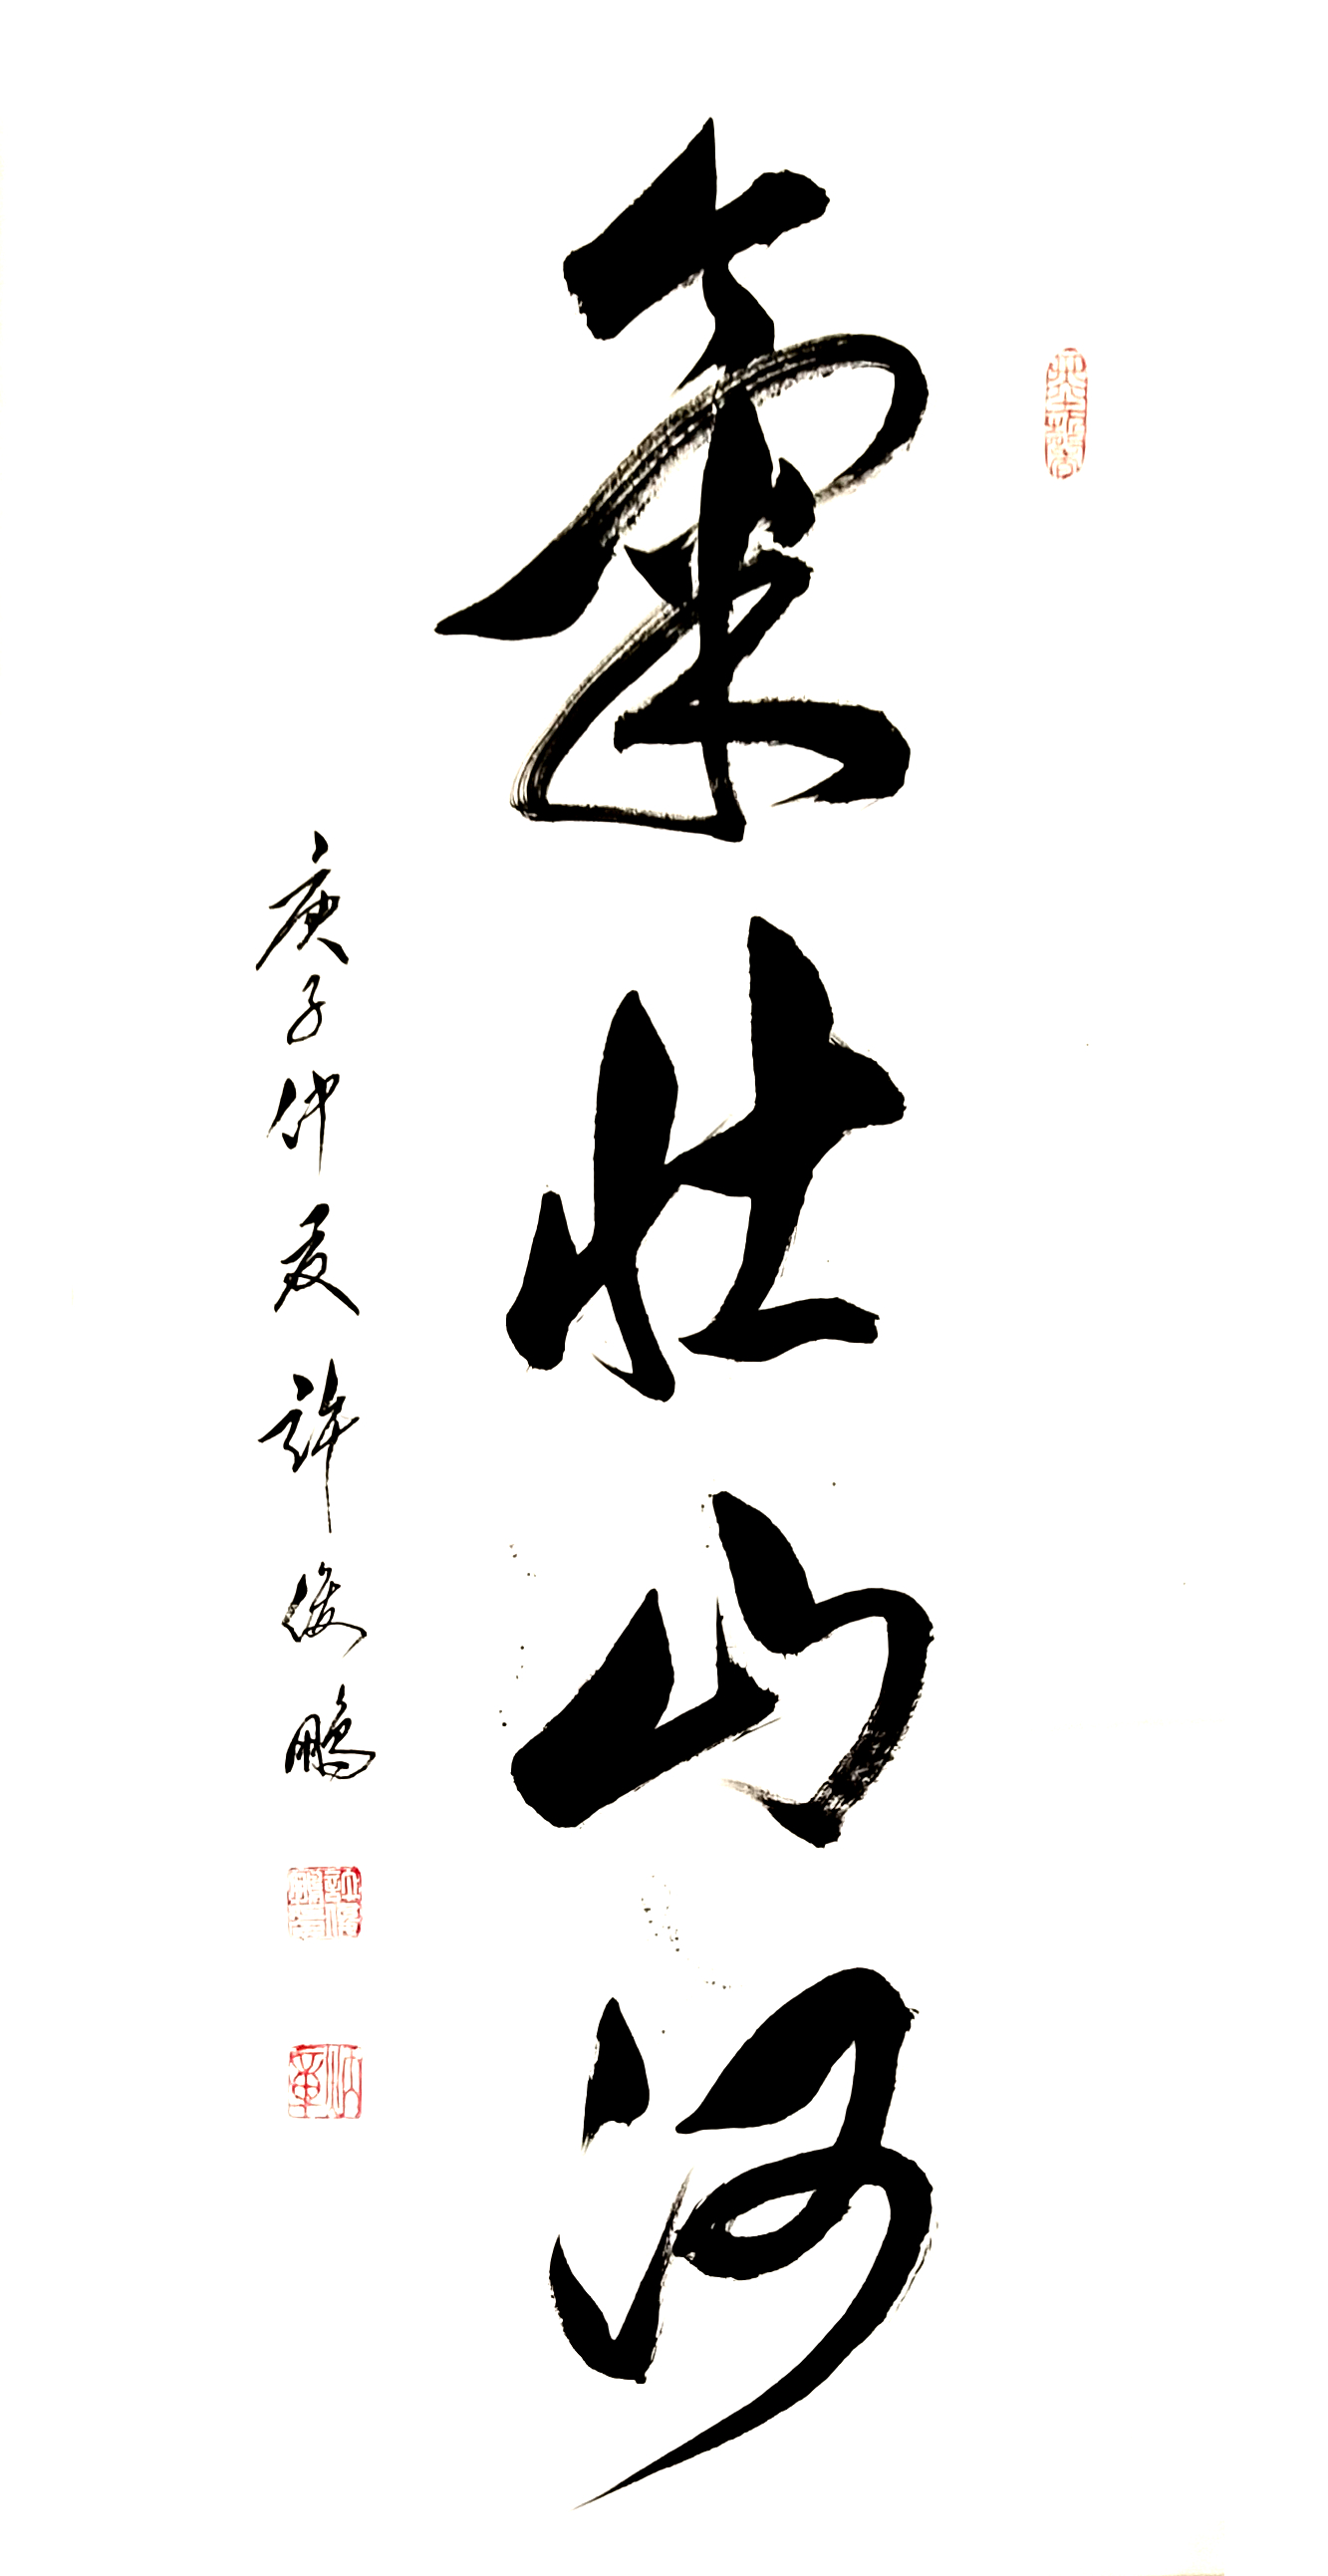 氣壯山河
庚子仲夏 許俊鵬